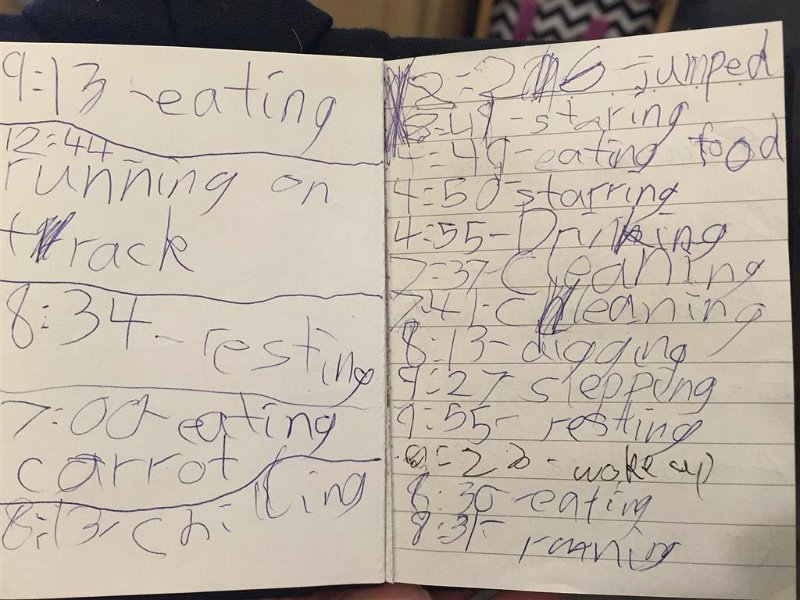 9:13 - eating
12:44
running on
track
8:34 - resting
7:00 - eating
carrot
8:13 - chilling
2:26 - jumped
:49 - staring
:49 - eating food
4:50 - starring
4:55 - Drinking
7:37 - Cleaning
7:41 - cleaning
8:13 - digging
9:27 slepping
9:55 - resting
- woke up
8:30 - eating
8:31 - running